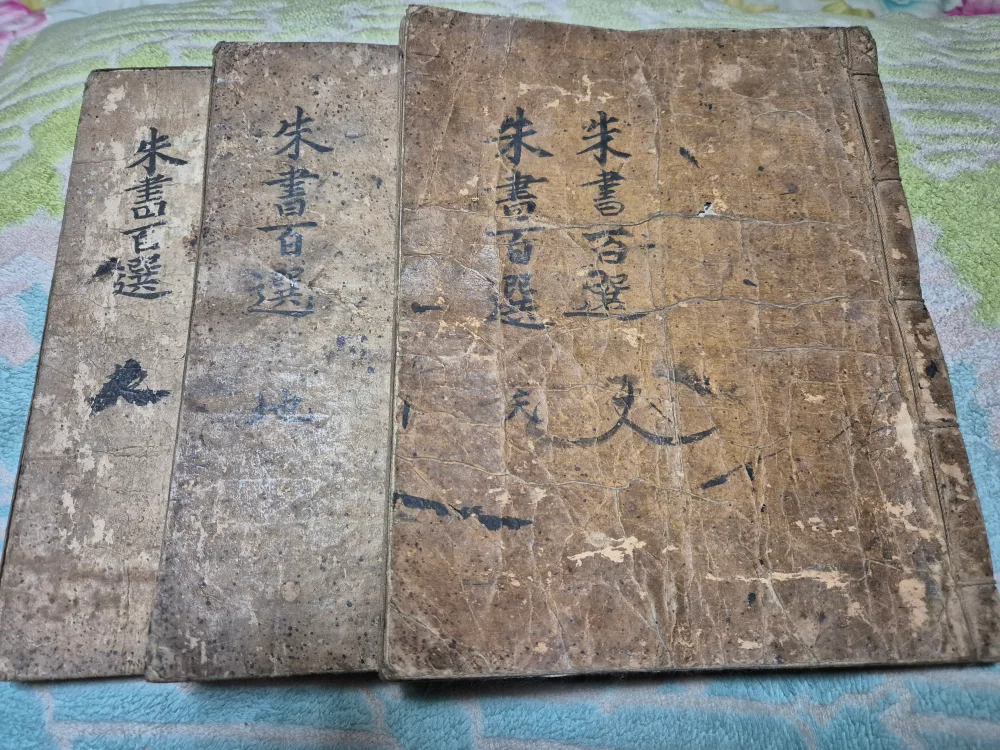 朱書百選
朱書百選 天
朱書百選 地
朱書百選 人